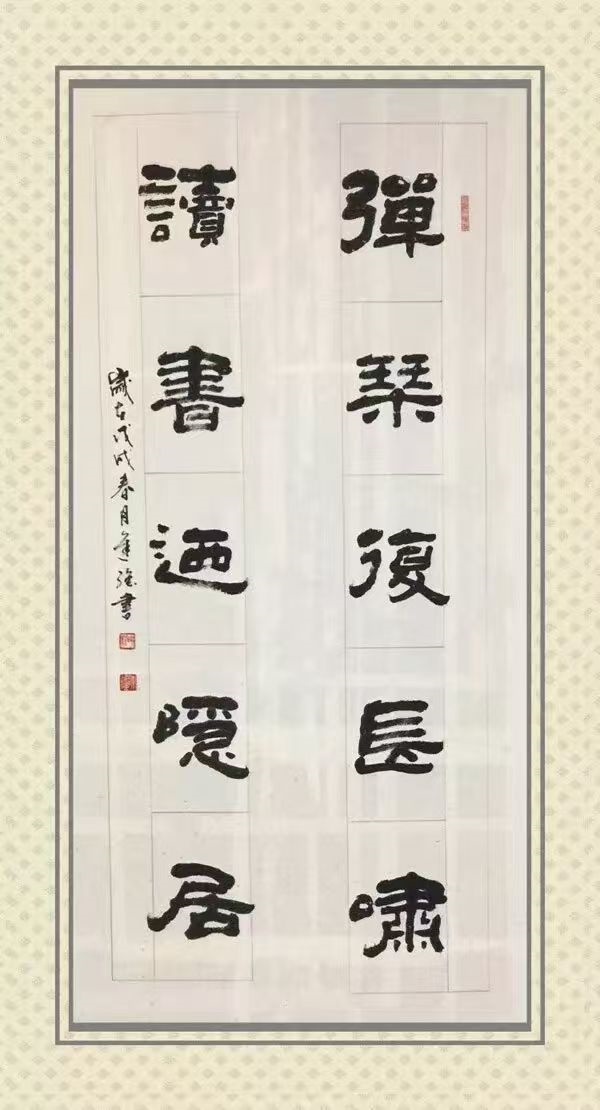 彈琴復長嘯
讀書迺隱居
歲在戊戌春月書